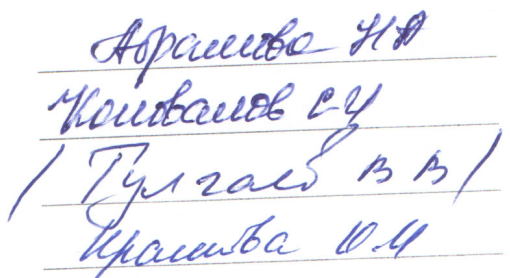 Абрамова НА
Коновалов С И
(Гулгаев В В)
Храмова Ю И